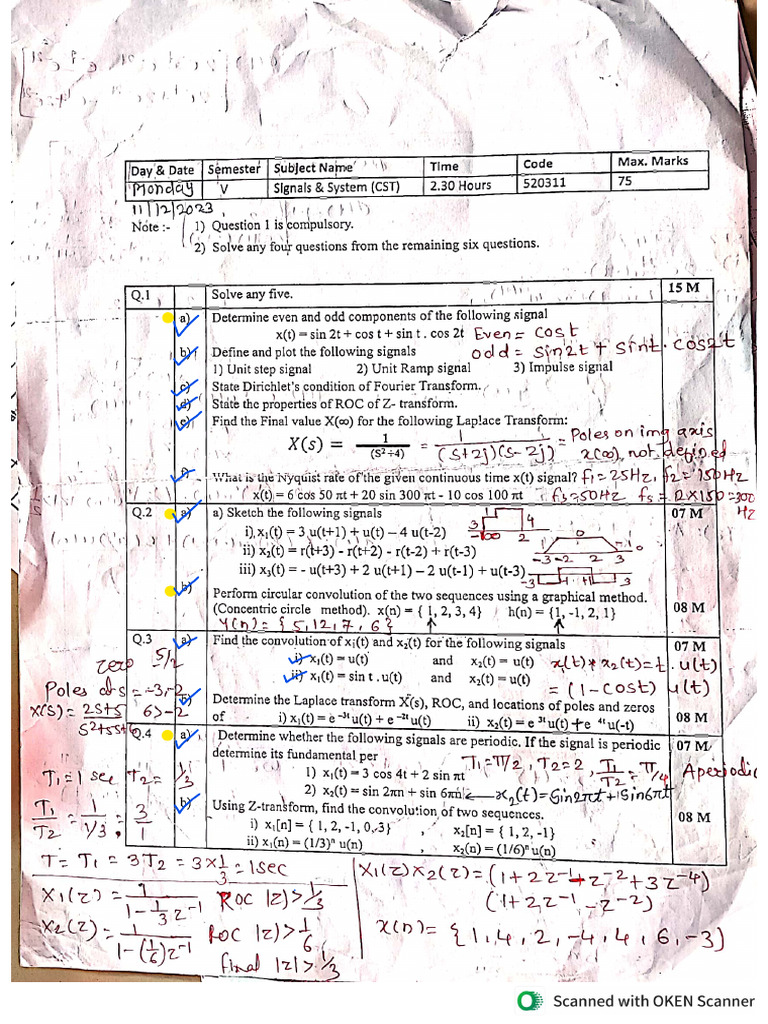 Day & Date | Semester | Subject Name | Time | Code | Max. Marks
Monday | V | Signals & System (CST) | 2.30 Hours | 520311 | 75
11/12/2023
Note :- 1) Question 1 is compulsory.
2) Solve any four questions from the remaining six questions.
Q.1 Solve any five. 15 M
a) Determine even and odd components of the following signal
x(t) = sin 2t + cos t + sin t . cos 2t Even = cost
odd = sin2t + sint. cos2t
b) Define and plot the following signals
1) Unit step signal 2) Unit Ramp signal 3) Impulse signal
c) State Dirichlet's condition of Fourier Transform.
d) State the properties of ROC of Z- transform.
e) Find the Final value X(∞) for the following Laplace Transform:
X(s) = 1/(S²+4) = 1/((S+2j)(S-2j)) = Poles on img axis
x(∞), not defined
f) What is the Nyquist rate of the given continuous time x(t) signal? f1=25Hz, f2=150Hz
x(t) = 6 cos 50 πt + 20 sin 300 πt - 10 cos 100 πt f3=50Hz fs=2X150=300
Hz
Q.2 a) a) Sketch the following signals 07 M
i) x₁(t) = 3 u(t+1) + u(t) – 4 u(t-2) 3 4 -1 0 2
ii) x₂(t) = r(t+3) - r(t+2) - r(t-2) + r(t-3) -3 -2 2 3
iii) x₃(t) = - u(t+3) + 2 u(t+1) – 2 u(t-1) + u(t-3) -3 -1 +1 3
b) Perform circular convolution of the two sequences using a graphical method.
(Concentric circle method). x(n) = { 1, 2, 3, 4} h(n) = {1, -1, 2, 1} 08 M
Y(n) = {5, 12, 7, 6}
Q.3 a) Find the convolution of x₁(t) and x₂(t) for the following signals 07 M
i) x₁(t) = u(t) and x₂(t) = u(t) x1(t) * x2(t) = t. u(t)
ii) x₁(t) = sin t . u(t) and x₂(t) = u(t) = (1-cost) u(t)
zero 5/2
Poles at s = -3, -2
X(S) = 2S+5 / S²+5S+6 6>-2
b) Determine the Laplace transform X(s), ROC, and locations of poles and zeros
of i) x₁(t) = e⁻³ᵗ u(t) + e⁻²ᵗ u(t) ii) x₂(t) = e³ᵗ u(t) + e⁴ᵗ u(-t) 08 M
Q.4 a) Determine whether the following signals are periodic. If the signal is periodic 07 M
determine its fundamental per T1=π/2, T2=2, T1/T2=π/4 Aperiodic
1) x₁(t) = 3 cos 4t + 2 sin πt
2) x₂(t) = sin 2πn + sin 6πn ← x2(t) = Sin2πt + 1Sin6πt
T1=1 sec T2=1/3
T1/T2 = 1/(1/3) = 3/1
b) Using Z-transform, find the convolution of two sequences. 08 M
i) x₁[n] = { 1, 2, -1, 0, 3} , x₂[n] = { 1, 2, -1}
ii) x₁(n) = (1/3)ⁿ u(n) , x₂(n) = (1/6)ⁿ u(n)
T = T1 = 3T2 = 3 x 1/3 = 1sec
X1(z) = 1/(1 - 1/3 z⁻¹) ROC |z|>1/3
X2(z) = 1/(1-(1/6)z⁻¹) ROC |z|>1/6
final |z|>1/3
X1(z) X2(z) = (1+2z⁻¹-z⁻²+3z⁻⁴)
(1+2z⁻¹-z⁻²)
x(n) = {1, 4, 2, -4, 4, 6, -3}
Scanned with OKEN Scanner